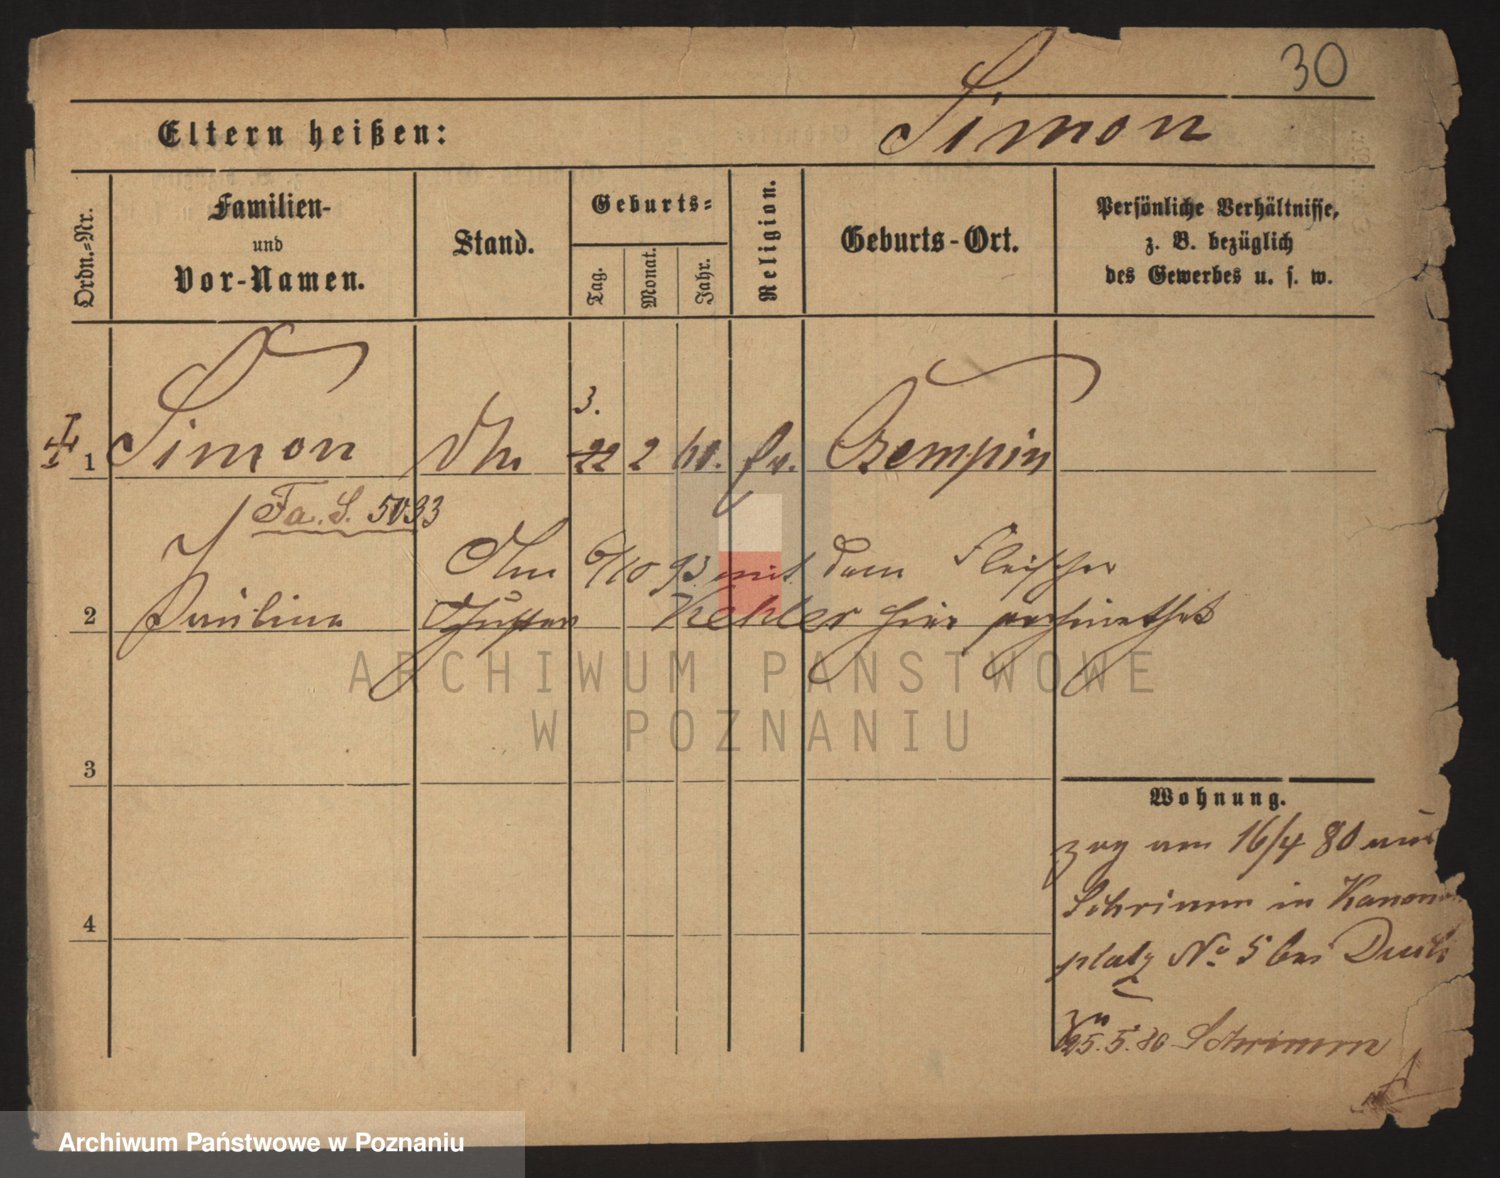 30
Simon
Eltern heißen:
Ordn.-Nr.
Familien-
und
Vor-Namen.
Stand.
Geburts-
Tag.
Monat.
Jahr.
Religion.
Geburts-Ort.
Persönliche Verhältnisse,
z. B. bezüglich
des Gewerbes u. s. w.
3.
1 Simon 22 2 60. Czempin
Fa. S. 5033
6/10 93 mit dem Fleischer
2 Paulina Kehler hier
ARCHIWUM PAŃSTWOWE
W POZNANIU
3
Wohnung.
zog am 16/4 80 aus
Schrimm in Kanonen
platz No 5 bei
4
25.5.80 Schrimm
Archiwum Państwowe w Poznaniu